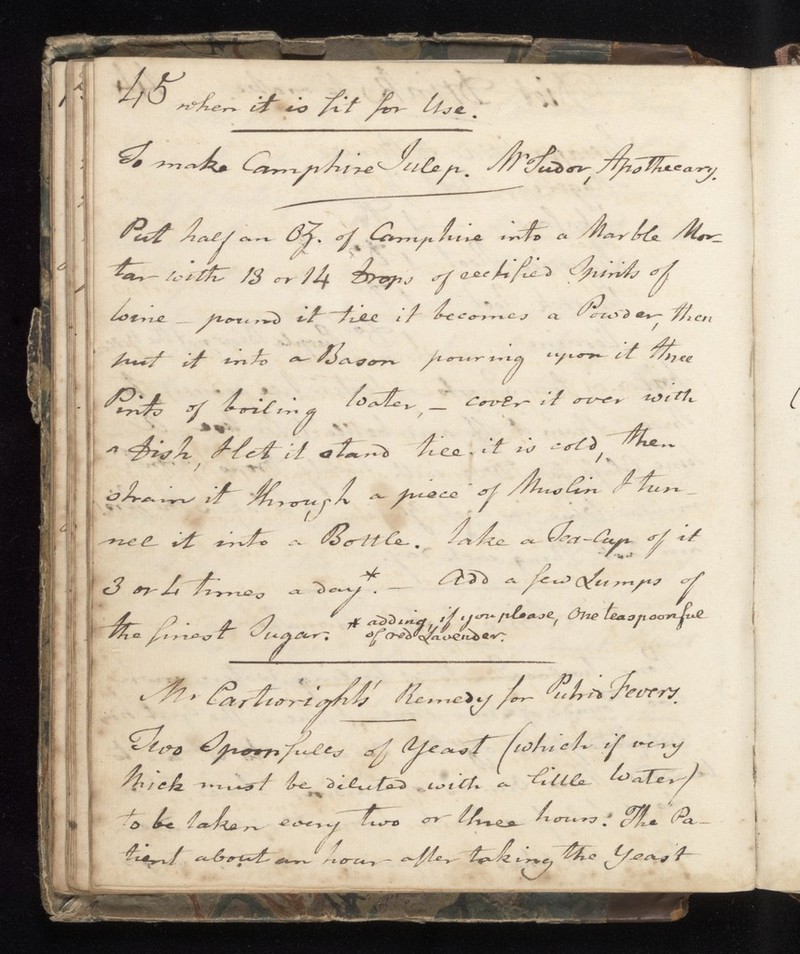 45 when it is fit for Use.
To make Camphire Julep. Mr Tudor, Apothecary.
Put half an Oz. of Camphire into a Marble Mor-
tar with 13 or 14 Drops of rectified Spirits of
Wine - pound it till it becomes a Powder, then
put it into a Bason pouring upon it three
Pints of boiling Water, - cover it over with
a Dish, & let it stand till it is cold, then
strain it through a piece of Muslin & tun-
nel it into a Bottle. Take a Tea-Cup of it
3 or 4 times a day*. - Add a few Lumps of
the finest Sugar. * adding, if you please, One teaspoonful
of red Lavender.
Mr Cartwright's Remedy for Putrid Fevers.
Two Spoonfulls of Yeast (which if very
thick must be diluted with a little Water)
to be taken every two or three hours: The Pa-
tient about an hour after taking the Yeast